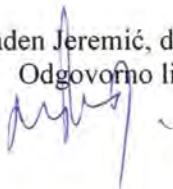 aden Jeremić, d
Odgovorno li